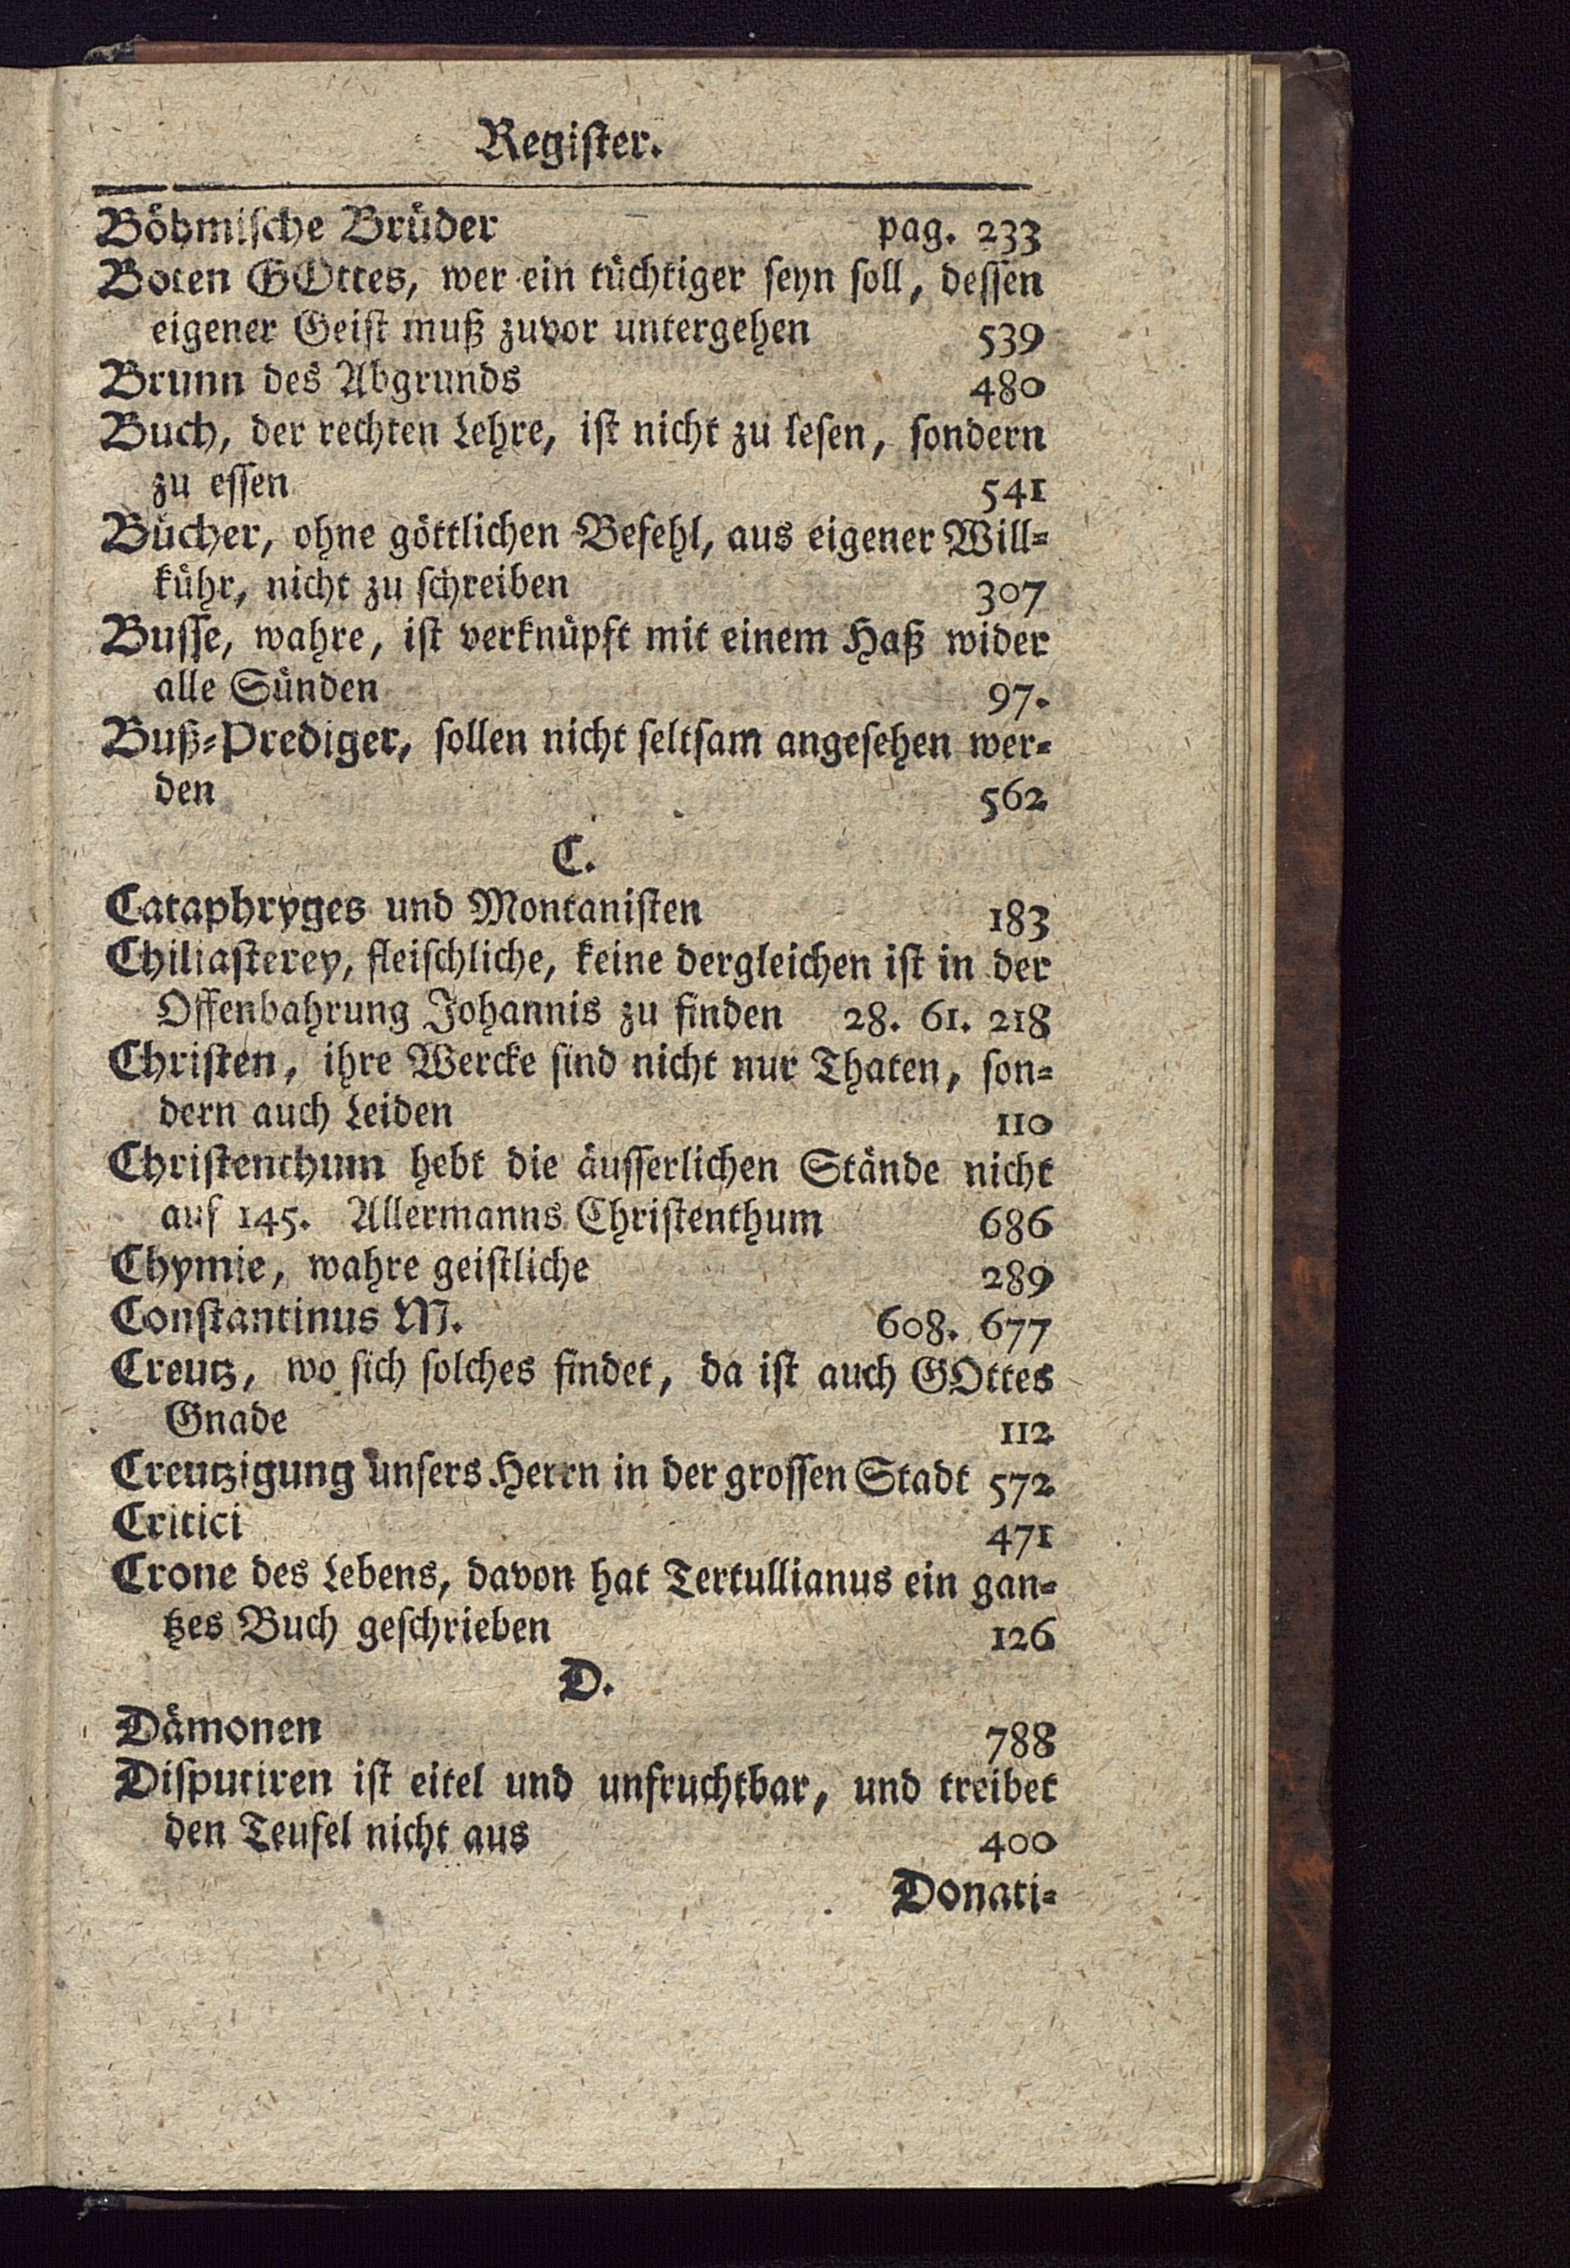 Register.
Böhmische Brüder pag. 233
Boten GOttes, wer ein tüchtiger seyn soll, dessen
eigener Geist muß zuvor untergehen 539
Brunn des Abgrunds 480
Buch, der rechten Lehre, ist nicht zu lesen, sondern
zu essen 541
Bücher, ohne göttlichen Befehl, aus eigener Will=
kühr, nicht zu schreiben 307
Busse, wahre, ist verknüpft mit einem Haß wider
alle Sünden 97.
Buß=Prediger, sollen nicht seltsam angesehen wer=
den 562
C.
Cataphryges und Montanisten 183
Chiliasterey, fleischliche, keine dergleichen ist in der
Offenbahrung Johannis zu finden 28. 61. 218
Christen, ihre Wercke sind nicht nur Thaten, son=
dern auch Leiden 110
Christenthum hebt die äusserlichen Stände nicht
auf 145. Allermanns Christenthum 686
Chymie, wahre geistliche 289
Constantinus M. 608. 677
Creutz, wo sich solches findet, da ist auch GOttes
Gnade 112
Creutzigung unsers Herrn in der grossen Stadt 572
Critici 471
Crone des Lebens, davon hat Tertullianus ein gan=
tzes Buch geschrieben 126
D.
Dämonen 788
Disputiren ist eitel und unfruchtbar, und treibet
den Teufel nicht aus 400
Donati=